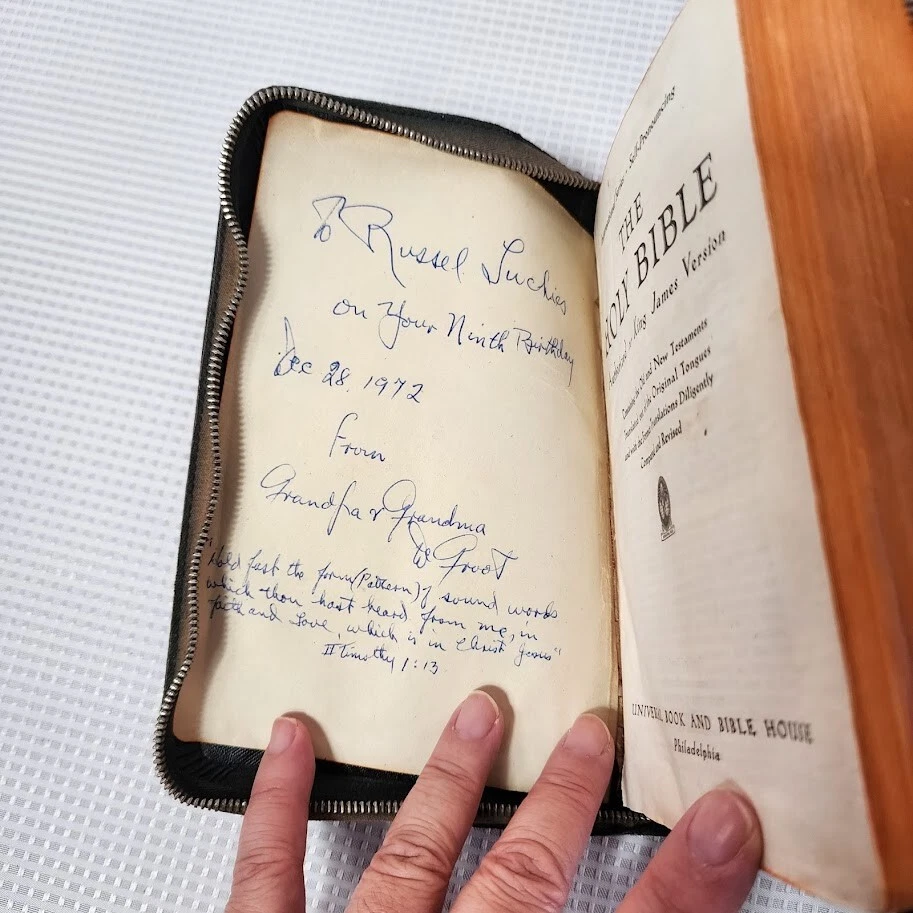 To Russel Luchies
on Your Ninth Birthday
Dec 28, 1972
From
Grandpa & Grandma
De Groot
"Hold fast the form (Pattern) of sound words
which thou hast heard from me, in
faith and Love, which is in Christ Jesus"
II Timothy 1:13
Self-Pronouncing
THE
HOLY BIBLE
King James Version
Containing the Old and New Testaments
Translated out of the Original Tongues
and with the Former Translations Diligently
Compared and Revised
UNIVERSAL BOOK AND BIBLE HOUSE
Philadelphia